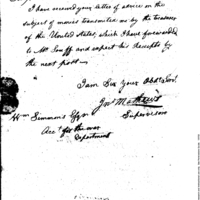 I have received your letter of advice on the
subject of monies transmitted me by the treasurer
of the United States, which I have forwarded
to Mr Snuff and expect his Receipts by
the next post
I am Sir Your Obdt Servt
Jno Mathews
Supervisor
Wm Simmons Esqr
Acct for the war
Department